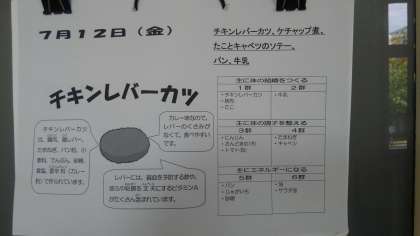 7月12日（金）
チキンレバーカツ、ケチャップ煮、
たことキャベツのソテー。
パン、牛乳
チキンレバーカツ
カレー味なので、
レバーのくさみが
なくて、食べやすい
です。
チキンレバーカツ
たまねぎ、パン粉、小
て作られています。
レバーには、貧血を予防する鉄や、
にするビタミンA
がたくさん含まれています。
主に体の組織をつくる
1群 2群
・チキンレバーカツ
・豚肉
・たこ
・牛乳
主に体の調子を整える
3群 4群
・にんじん
・さんどまめ(冷)
・トマト(缶)
・たまねぎ
・キャベツ
主にエネルギーになる
5群 6群
・パン
・じゃがいも
・砂糖
・油
・サラダ油